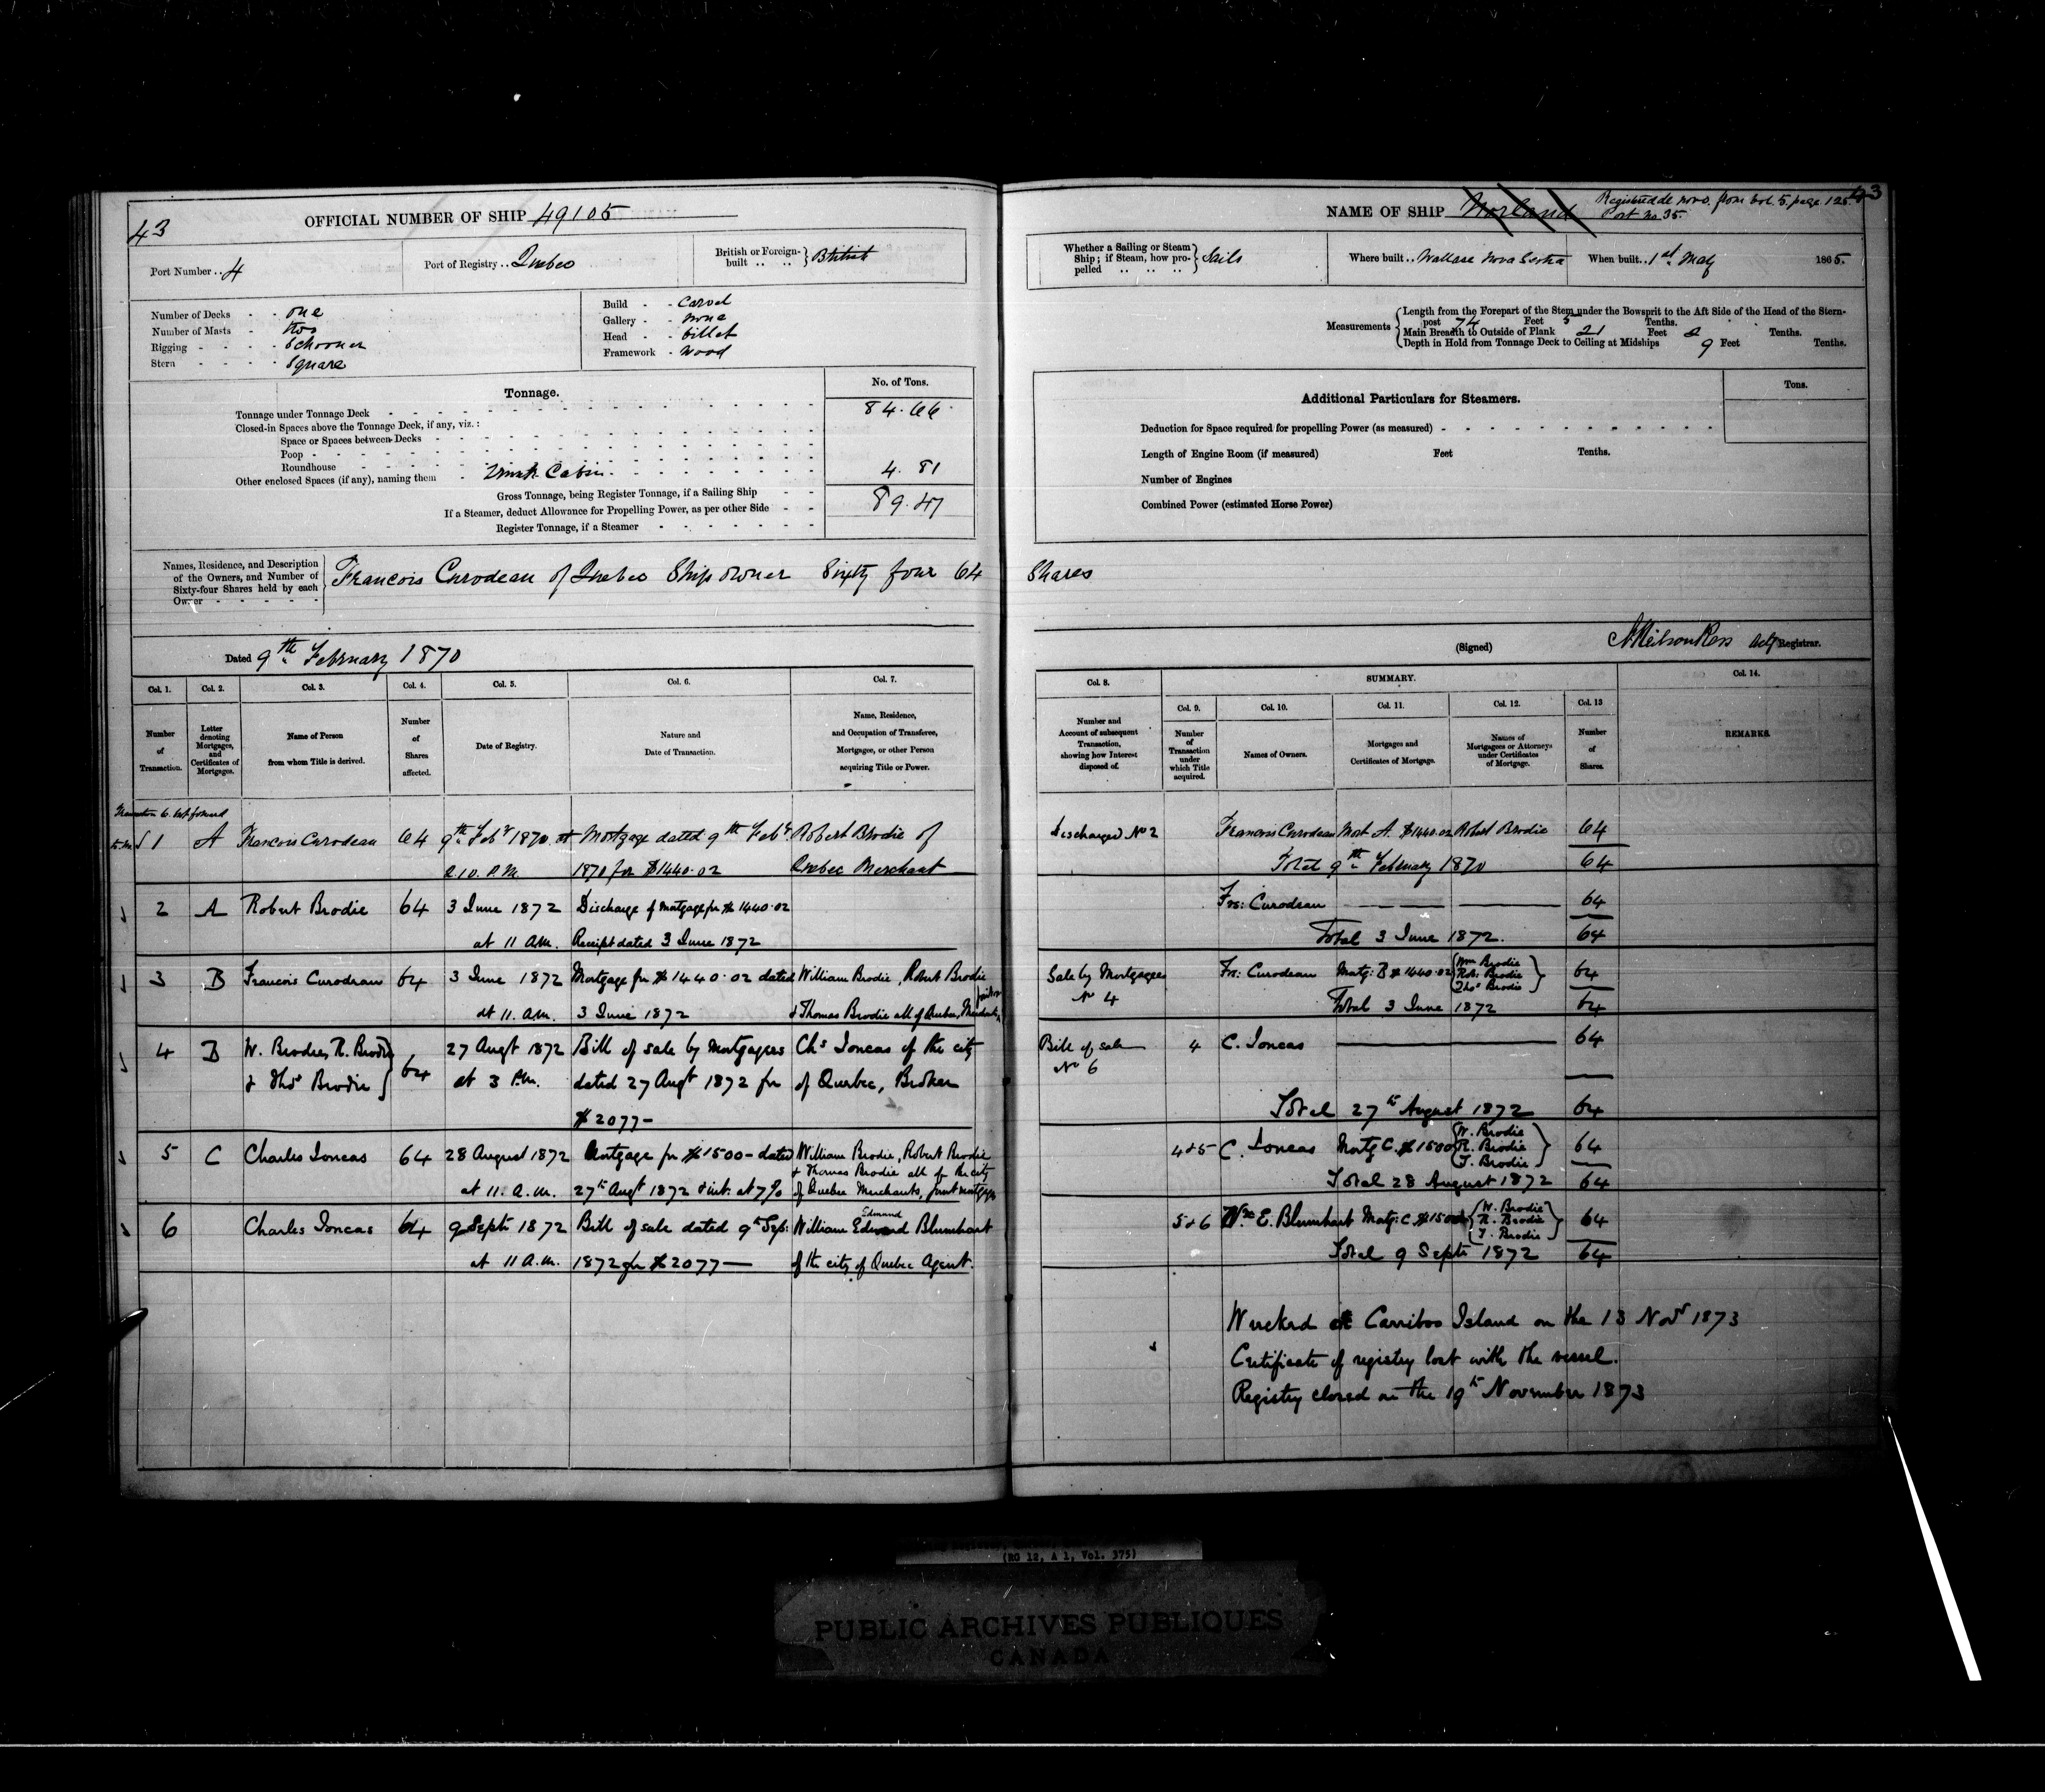 43
OFFICIAL NUMBER OF SHIP 49105
Port Number .. 4
Port of Registry .. Quebec
British or Foreign-built .. .. } British
Number of Decks - - one
Number of Masts - two
Rigging - - - - Schooner
Stern - - - - Square
Build - - Carvel
Gallery - - none
Head - - billet
Framework - Wood
Tonnage.
No. of Tons.
Tonnage under Tonnage Deck 84.66
Closed-in Spaces above the Tonnage Deck, if any, viz.:
Space or Spaces between Decks
Poop
Roundhouse
Other enclosed Spaces (if any), naming them - Cabin 4.81
Gross Tonnage, being Register Tonnage, if a Sailing Ship 89.47
If a Steamer, deduct Allowance for Propelling Power, as per other Side
Register Tonnage, if a Steamer
Names, Residence, and Description
of the Owners, and Number of
Sixty-four Shares held by each
Owner
Francois Curodeau of Quebec Ship owner Sixty four 64
Dated 9th February 1870
Col. 1. Col. 2. Col. 3. Col. 4. Col. 5. Col. 6. Col. 7.
Number of Transaction.
Letter denoting Mortgages, and Certificates of Mortgages.
Name of Person from whom Title is derived.
Number of Shares affected.
Date of Registry.
Nature and Date of Transaction.
Name, Residence, and Occupation of Transferee, Mortgagee, or other Person acquiring Title or Power.
1 A Francois Curodeau 64 9th Feby 1870 at Mortgage dated 9th Feby Robert Brodie of
2.10. P.M. 1870 for $1440.02 Quebec Merchant
2 A Robert Brodie 64 3 June 1872 Discharge of Mortgage for $1440.02
at 11 A.M. Receipt dated 3 June 1872
3 B Francois Curodeau 64 3 June 1872 Mortgage for $1440.02 dated William Brodie, Robert Brodie
at 11. A.M. 3 June 1872 & Thomas Brodie all of Quebec,
4 B W. Brodie, R. Brodie 27 Augt 1872 Bill of sale by Mortgagees Chs Joncas of the city
& Thos Brodie } 64 at 3 P.M. dated 27 Augt 1872 for of Quebec, Broker
$2077—
5 C Charles Joncas 64 28 August 1872 Mortgage for $1500— dated William Brodie, Robert Brodie
& Thomas Brodie all of the city
at 11. A.M. 27th Augt 1872 & int. at 7% of Quebec Merchants, joint mortgagees
6 Charles Joncas 64 9 Septr 1872 Bill of sale dated 9th Sep: William Edward Blumhart
Edmund
at 11 A.M. 1872 for $2077— of the city of Quebec Agent.
NAME OF SHIP Norland
Registered de novo from vol. 5, page 125.
Port No 35.
43
Whether a Sailing or Steam Ship; if Steam, how propelled .. .. .. } Sails
Where built .. Wallace Nova Scotia
When built .. 1st May 1865.
Measurements
Length from the Forepart of the Stem under the Bowsprit to the Aft Side of the Head of the Stern-
post 74 Feet 5 Tenths.
Main Breadth to Outside of Plank 21 Feet 2 Tenths.
Depth in Hold from Tonnage Deck to Ceiling at Midships 9 Feet Tenths.
Additional Particulars for Steamers.
Tons.
Deduction for Space required for propelling Power (as measured)
Length of Engine Room (if measured) Feet Tenths.
Number of Engines
Combined Power (estimated Horse Power)
Shares
(Signed) Registrar.
Col. 8. SUMMARY. Col. 14.
Col. 9. Col. 10. Col. 11. Col. 12. Col. 13
Number and Account of subsequent Transaction, showing how Interest disposed of.
Number of Transaction under which Title acquired.
Names of Owners.
Mortgages and Certificates of Mortgage.
Names of Mortgagees or Attorneys under Certificates of Mortgage.
Number of Shares.
REMARKS.
Discharged No 2 Francois Curodeau Mort A. $1440.02 Robert Brodie 64
Total 9th February 1870 64
Frs: Curodeau 64
Total 3 June 1872. 64
Sale by Mortgagees Frs: Curodeau Mortg: B $1440.02 Wm Brodie Rob: Brodie Thos Brodie 64
No 4 Total 3 June 1872 64
Bill of sale 4 C. Joncas 64
No 6
Total 27th August 1872 64
4 & 5 C. Joncas Mortg C. $1500 W. Brodie R. Brodie T. Brodie 64
Total 28 August 1872 64
5 & 6 Wm E. Blumhart Mortg: C $1500 W. Brodie R. Brodie T. Brodie 64
Total 9 Septr 1872 64
Wrecked at Carriboo Island on the 13 Novr 1873
Certificate of registry lost with the vessel.
Registry closed on the 19th November 1873
(RG 12, A 1, Vol. 375)
PUBLIC ARCHIVES PUBLIQUES
CANADA